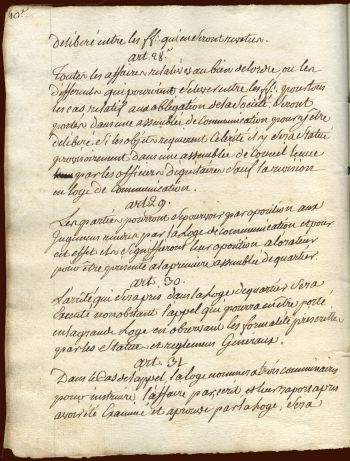 10e
delibéré entre les ff∴ qui en seront
art. 28.
Toutes les affaires relatives au bien de l'ordre ou les
differents qui pourront s'elever entre les ff∴ pour tous
les cas relatif aux obligation de la Société seront
portés dans une assemblée de communication pour y être
delibéré si les objets requierent Celerité il y sera Statué
provisoirement dans une assemblée de Conseil tenue
par les officiers dignitaires sauf la revision
en loge de Communication.
art 29.
Les parties pourront se pourvoir par oposition aux
Jugemens rendus par la Loge de communication et pour
cet effet ils signifferont leur oposition à l'orateur
pour être presenté à la première assemblée de quartier.
art. 30.
L'arrêté qui sera pris dans la Loge de quartier sera
executé nonobstant l'appel qui pourra en être porté
en la grande Loge en observant les formalités prescrites
par les Statuts et reglemens Generaux.
art. 31
Dans le Cas de l'appel, la loge nommera trois commissaires
pour instruire l'affaire par écrit et leur raport après
avoir été Examiné et aprouvé par la loge, sera